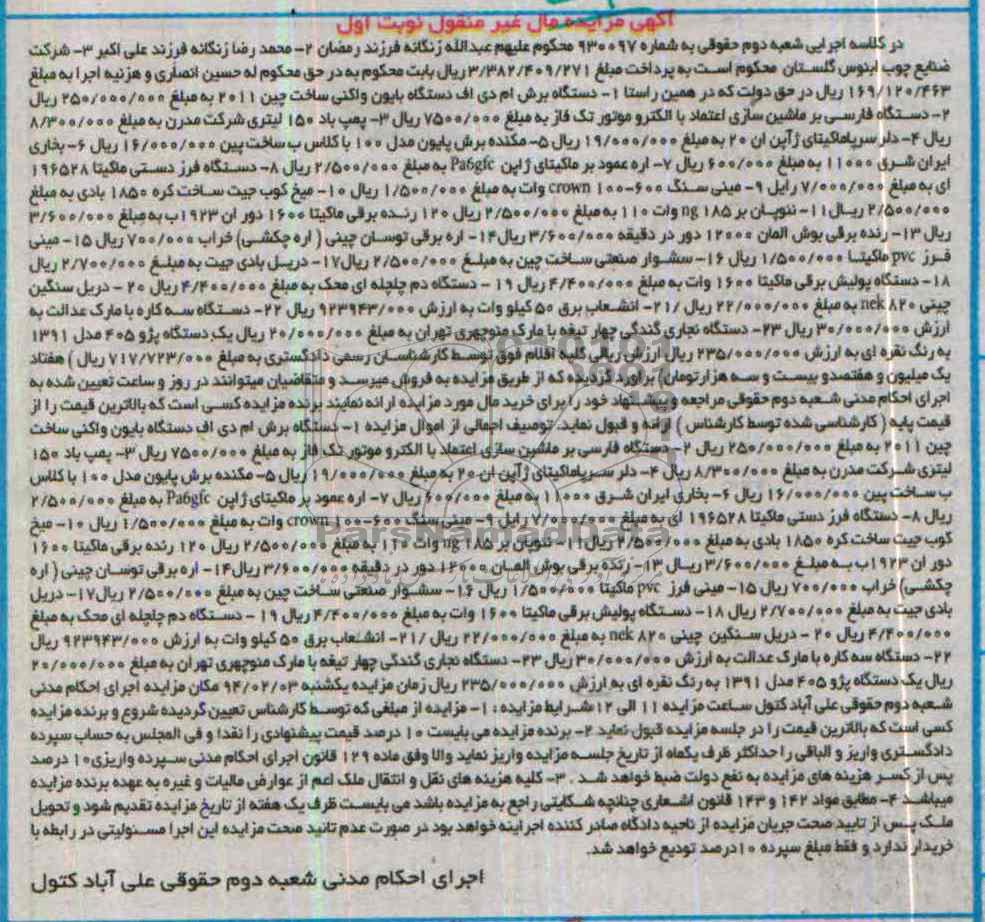 آگهی مزایده مال غیر منقول نوبت اول
در کلاسه اجرایی شعبه دوم حقوقی به شماره ۹۳۰۰۹۷ محکوم علیهم عبدالله زنگانه فرزند رمضان ۲- محمد رضا زنگانه فرزند علی اکبر ۳- شرکت
صنایع چوب ابنوس گلستان محکوم است به پرداخت مبلغ ۳/۳۸۲/۴۰۹/۲۷۱ ریال بابت محکوم به در حق محکوم له حسین انصاری و هزنیه اجرا به مبلغ
۱۶۹/۱۲۰/۴۶۳ ریال در حق دولت که در همین راستا ۱- دستگاه برش ام دی اف دستگاه بایون واکنی ساخت چین ۲۰۱۱ به مبلغ ۲۵۰/۰۰۰/۰۰۰ ریال
۲- دستگاه فارسی بر ماشین سازی اعتماد با الکترو موتور تک فاز به مبلغ ۷۵۰۰/۰۰۰ ریال ۳- پمپ باد ۱۵۰ لیتری شرکت مدرن به مبلغ ۸/۳۰۰/۰۰۰
ریال ۴- دلر سرپاماکیتای ژآپن ان ۲۰ به مبلغ ۱۹/۰۰۰/۰۰۰ ریال ۵- مکنده برش پایون مدل ۱۰۰ با کلاس ب ساخت پین ۱۶/۰۰۰/۰۰۰ ریال ۶- بخاری
ایران شرق ۱۱۰۰۰ به مبلغ ۶۰۰/۰۰۰ ریال ۷- اره عمود بر ماکیتای ژاپن Pa6gfc به مبلغ ۲/۵۰۰/۰۰۰ ریال ۸- دستگاه فرز دستی ماکیتا ۱۹۶۵۲۸
ای به مبلغ ۷/۰۰۰/۰۰۰ رایل ۹- مینی سنگ ۶۰۰-۱۰۰ crown وات به مبلغ ۱/۵۰۰/۰۰۰ ریال ۱۰- میخ کوب جیت ساخت کره ۱۸۵۰ بادی به مبلغ
۲/۵۰۰/۰۰۰ ریال۱۱- نئوپان بر ng ۱۸۵ وات ۱۱۰ به مبلغ ۲/۵۰۰/۰۰۰ ریال ۱۲۰ رنده برقی ماکیتا ۱۶۰۰ دور ان ۱۹۲۳ ب به مبلغ ۳/۶۰۰/۰۰۰
ریال ۱۳- رنده برقی بوش المان ۱۲۰۰۰ دور در دقیقه ۳/۶۰۰/۰۰۰ ریال۱۴- اره برقی توسان چینی ( اره چکشی) خراب ۷۰۰/۰۰۰ ریال ۱۵- مینی
فرز pvc ماکیتا ۱/۵۰۰/۰۰۰ ریال ۱۶- سشوار صنعتی ساخت چین به مبلغ ۲/۵۰۰/۰۰۰ ریال۱۷- دریل بادی جیت به مبلغ ۲/۷۰۰/۰۰۰ ریال
۱۸- دستگاه پولیش برقی ماکیتا ۱۶۰۰ وات به مبلغ ۴/۴۰۰/۰۰۰ ریال ۱۹ - دستگاه دم چلچله ای محک به مبلغ ۴/۴۰۰/۰۰۰ ریال ۲۰ - دریل سنگین
چینی nek ۸۲۰ به مبلغ ۲۲/۰۰۰/۰۰۰ ریال /۲۱- انشعاب برق ۵۰ کیلو وات به ارزش ۹۲۳۹۴۳/۰۰۰ ریال ۲۲- دستگاه سه کاره با مارک عدالت به
ارزش ۳۰/۰۰۰/۰۰۰ ریال ۲۳- دستگاه نجاری گندگی چهار تیغه با مارک منوچهری تهران به مبلغ ۲۰/۰۰۰/۰۰۰ ریال یک دستگاه پژو ۴۰۵ مدل ۱۳۹۱
به رنگ نقره ای به ارزش ۲۳۵/۰۰۰/۰۰۰ ریال ارزش ریالی کلیه اقلام فوق توسط کارشناسان رسمی دادگستری به مبلغ ۷۱۷/۷۲۳/۰۰۰ ریال ) هفتاد
یک میلیون و هفتصدو بیست و سه هزارتومان) براورد گردیده که از طریق مزایده به فروش میرسد و متقاضیان میتوانند در روز و ساعت تعیین شده به
اجرای احکام مدنی شعبه دوم حقوقی مراجعه و پیشنهاد خود را برای خرید مال مورد مزایده ارائه نمایند برنده مزایده کسی است که بالاترین قیمت را از
قیمت پایه ( کارشناسی شده توسط کارشناس ) ارائه و قبول نماید. توصیف اجمالی از اموال مزایده ۱- دستگاه برش ام دی اف دستگاه بایون واکنی ساخت
چین ۲۰۱۱ به مبلغ ۲۵۰/۰۰۰/۰۰۰ ریال ۲- دستگاه فارسی بر ماشین سازی اعتماد با الکترو موتور تک فاز به مبلغ ۷۵۰۰/۰۰۰ ریال ۳- پمپ باد ۱۵۰
لیتری شرکت مدرن به مبلغ ۸/۳۰۰/۰۰۰ ریال ۴- دلر سرپاماکیتای ژآپن ان ۲۰ به مبلغ ۱۹/۰۰۰/۰۰۰ ریال ۵- مکنده برش پایون مدل ۱۰۰ با کلاس
ب ساخت پین ۱۶/۰۰۰/۰۰۰ ریال ۶- بخاری ایران شرق ۱۱۰۰۰ به مبلغ ۶۰۰/۰۰۰ ریال ۷- اره عمود بر ماکیتای ژاپن Pa6gfc به مبلغ ۲/۵۰۰/۰۰۰
ریال ۸- دستگاه فرز دستی ماکیتا ۱۹۶۵۲۸ ای به مبلغ ۷/۰۰۰/۰۰۰ رایل ۹- مینی سنگ ۶۰۰-۱۰۰ crown وات به مبلغ ۱/۵۰۰/۰۰۰ ریال ۱۰- میخ
کوب جیت ساخت کره ۱۸۵۰ بادی به مبلغ ۲/۵۰۰/۰۰۰ ریال۱۱- نئوپان بر ng ۱۸۵ وات ۱۱۰ به مبلغ ۲/۵۰۰/۰۰۰ ریال ۱۲۰ رنده برقی ماکیتا ۱۶۰۰
دور ان ۱۹۲۳ ب به مبلغ ۳/۶۰۰/۰۰۰ ریال ۱۳- رنده برقی بوش المان ۱۲۰۰۰ دور در دقیقه ۳/۶۰۰/۰۰۰ ریال۱۴- اره برقی توسان چینی ( اره
چکشی) خراب ۷۰۰/۰۰۰ ریال ۱۵- مینی فرز pvc ماکیتا ۱/۵۰۰/۰۰۰ ریال ۱۶- سشوار صنعتی ساخت چین به مبلغ ۲/۵۰۰/۰۰۰ ریال۱۷- دریل
بادی جیت به مبلغ ۲/۷۰۰/۰۰۰ ریال ۱۸- دستگاه پولیش برقی ماکیتا ۱۶۰۰ وات به مبلغ ۴/۴۰۰/۰۰۰ ریال ۱۹ - دستگاه دم چلچله ای محک به مبلغ
۴/۴۰۰/۰۰۰ ریال ۲۰ - دریل سنگین چینی nek ۸۲۰ به مبلغ ۲۲/۰۰۰/۰۰۰ ریال /۲۱- انشعاب برق ۵۰ کیلو وات به ارزش ۹۲۳۹۴۳/۰۰۰ ریال
۲۲- دستگاه سه کاره با مارک عدالت به ارزش ۳۰/۰۰۰/۰۰۰ ریال ۲۳- دستگاه نجاری گندگی چهار تیغه با مارک منوچهری تهران به مبلغ ۲۰/۰۰۰/۰۰۰
ریال یک دستگاه پژو ۴۰۵ مدل ۱۳۹۱ به رنگ نقره ای به ارزش ۲۳۵/۰۰۰/۰۰۰ ریال زمان مزایده یکشنبه ۹۴/۰۲/۰۳ مکان مزایده اجرای احکام مدنی
شعبه دوم حقوقی علی آباد کتول ساعت مزایده ۱۱ الی ۱۲ شرایط مزایده : ۱- مزایده از مبلغی که توسط کارشناس تعیین گردیده شروع و برنده مزایده
کسی است که بالاترین قیمت را در جلسه مزایده قبول نماید ۲- برنده مزایده می بایست ۱۰ درصد قیمت پیشنهادی را نقدا و فی المجلس به حساب سپرده
دادگستری واریز و الباقی را حداکثر ظرف یکماه از تاریخ جلسه مزایده واریز نماید والا وفق ماده ۱۲۹ قانون اجرای احکام مدنی سپرده واریزی۱۰ درصد
پس از کسر هزینه های مزایده به نفع دولت ضبط خواهد شد . ۳- کلیه هزینه های نقل و انتقال ملک اعم از عوارض مالیات و غیره به عهده برنده مزایده
میباشد ۴- مطابق مواد ۱۴۲ و ۱۴۳ قانون اشعاری چنانچه شکایتی راجع به مزایده باشد می بایست ظرف یک هفته از تاریخ مزایده تقدیم شود و تحویل
ملک پس از تایید صحت جریان مزایده از ناحیه دادگاه صادر کننده اجراینه خواهد بود در صورت عدم تائید صحت مزایده این اجرا مسئولیتی در رابطه با
خریدار ندارد و فقط مبلغ سپرده ۱۰درصد تودیع خواهد شد.
اجرای احکام مدنی شعبه دوم حقوقی علی آباد کتول
ParsNamadData